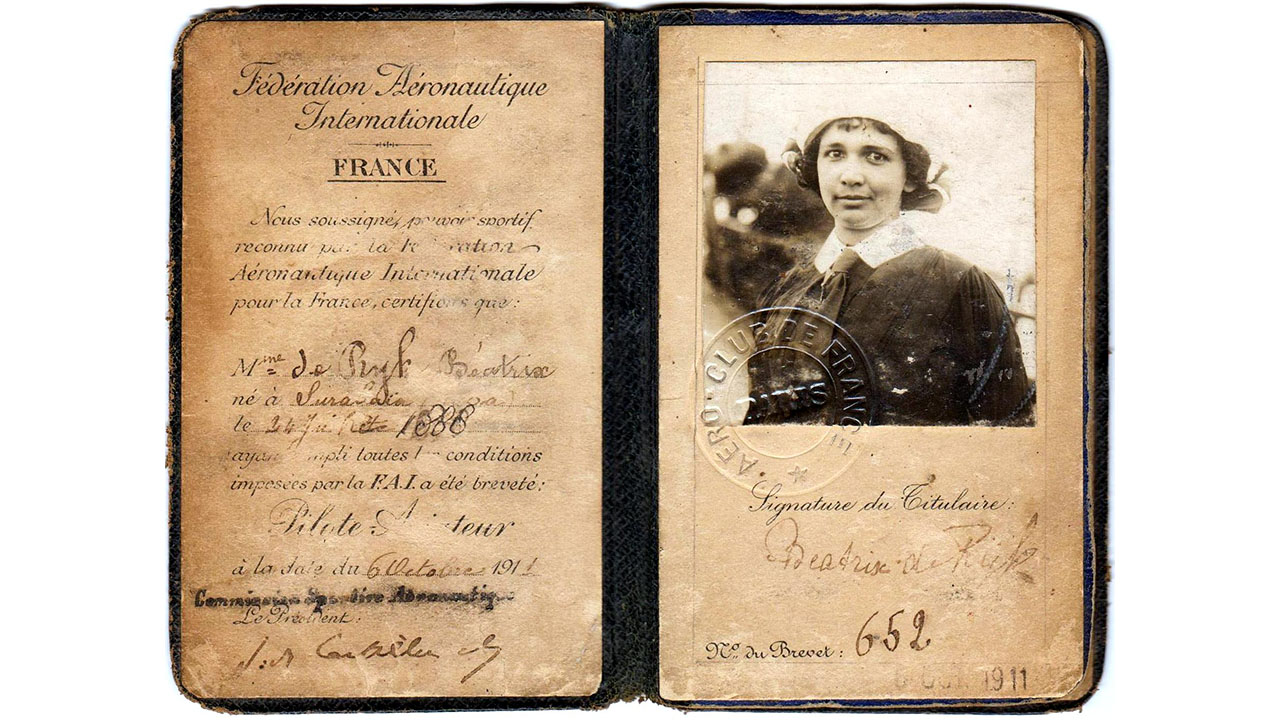 Fédération Aéronautique
Internationale
FRANCE
Nous soussigné, pouvoir sportif
reconnu par la
Aéronautique Internationale
pour la France, certifions que:
Mme de Ryk Béatrix
né à
le 24 Juillet 1888
toutes conditions
imposées par la F.A.I. a été breveté:
Pilote-Aviateur
à la date du 6 Octobre 1911
Commission Sportive Aéronautique
Le Président:
AERO-CLUB DE FRANCE
PARIS
Signature du Titulaire:
Béatrix de Rijk
No. du Brevet: 652
1911